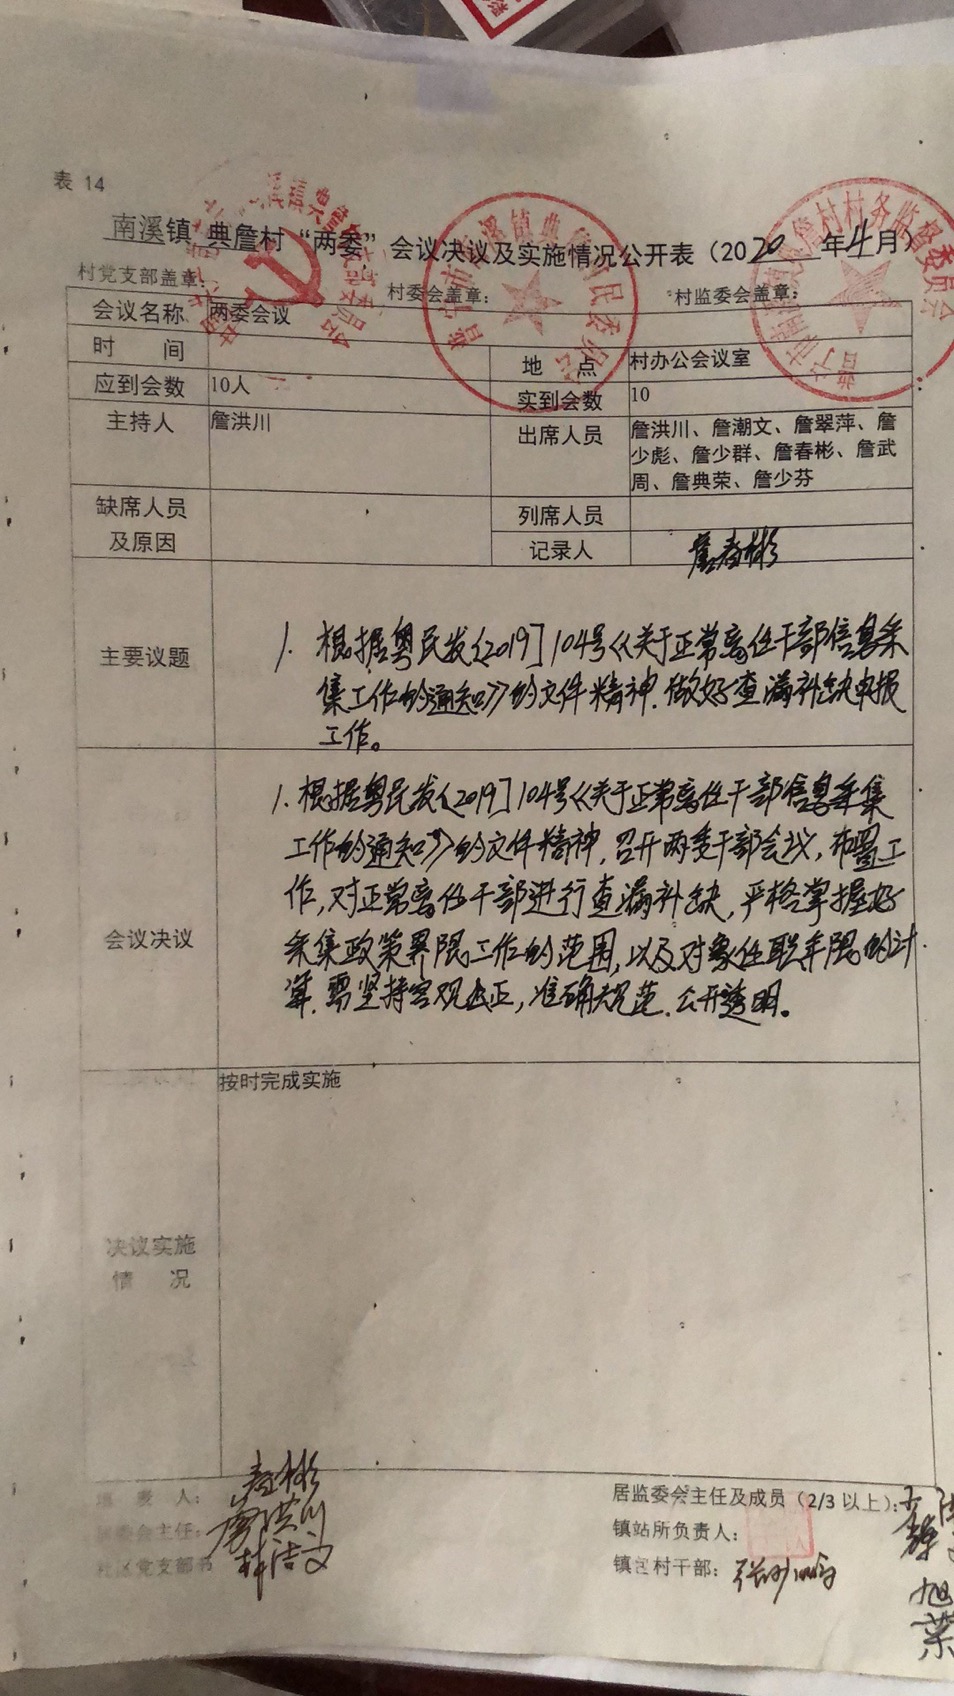 表 14
南溪镇 典詹村“两委”会议决议及实施情况公开表（2020 年4月）
村党支部盖章： 村委会盖章： 村监委会盖章：
会议名称 两委会议
时 间 地 点 村办公会议室
应到会数 10人 实到会数 10
主持人 詹洪川 出席人员 詹洪川、詹潮文、詹翠萍、詹
少彪、詹少群、詹春彬、詹武
周、詹典荣、詹少芬
缺席人员 列席人员
及原因 记录人 詹春彬
主要议题
1. 根据粤民发〔2019〕104号《关于正常离任干部信息采
集工作的通知》的文件精神.做好查漏补缺申报
工作。
会议决议
1.根据粤民发〔2019〕104号《关于正常离任干部信息采集
工作的通知》的文件精神,召开两委干部会议,布置工
作,对正常离任干部进行查漏补缺,严格掌握好
采集政策界限,工作的范围,以及对象任职年限的计
算.需坚持客观公正,准确规范.公开透明。
决议实施
情 况
按时完成实施
填 表 人： 春彬
居委会主任： 詹洪川
社区党支部书 林洁文
居监委会主任及成员（2/3 以上）：
镇站所负责人：
镇包村干部：